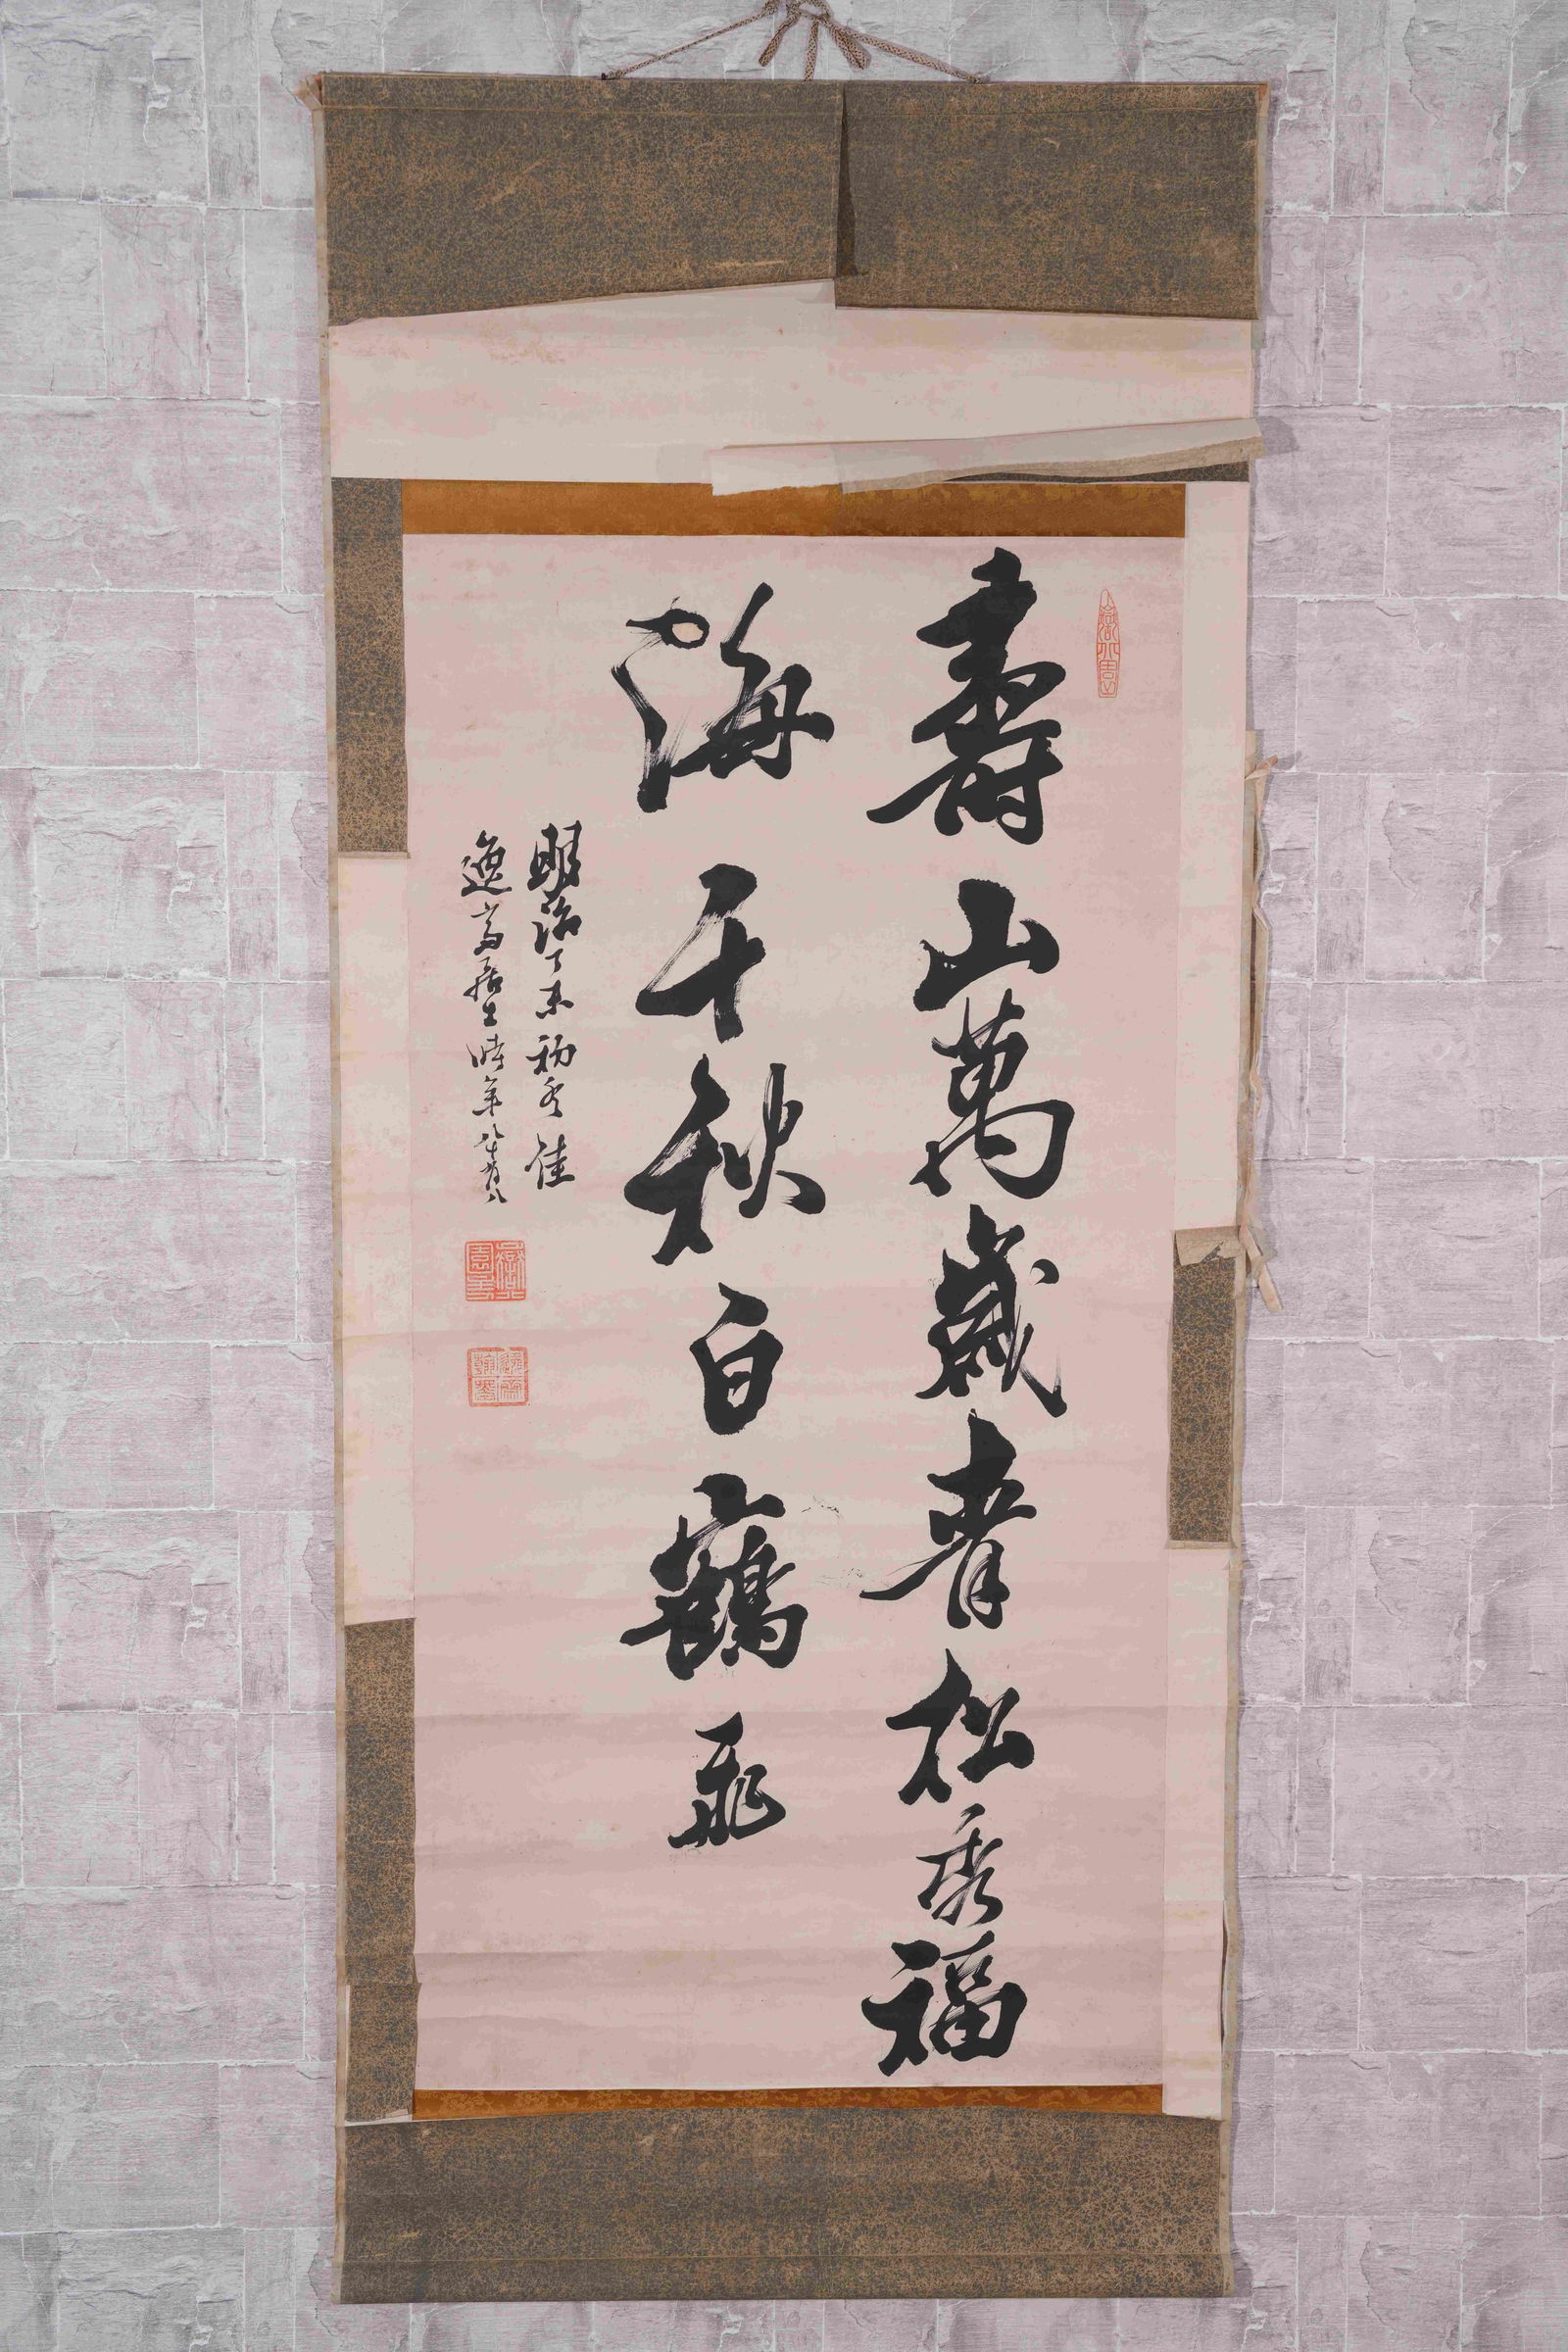 壽山萬歲青松秀福
海千秋白鶴飛
明治丁未初冬佳
逸齋居士時年八十有八